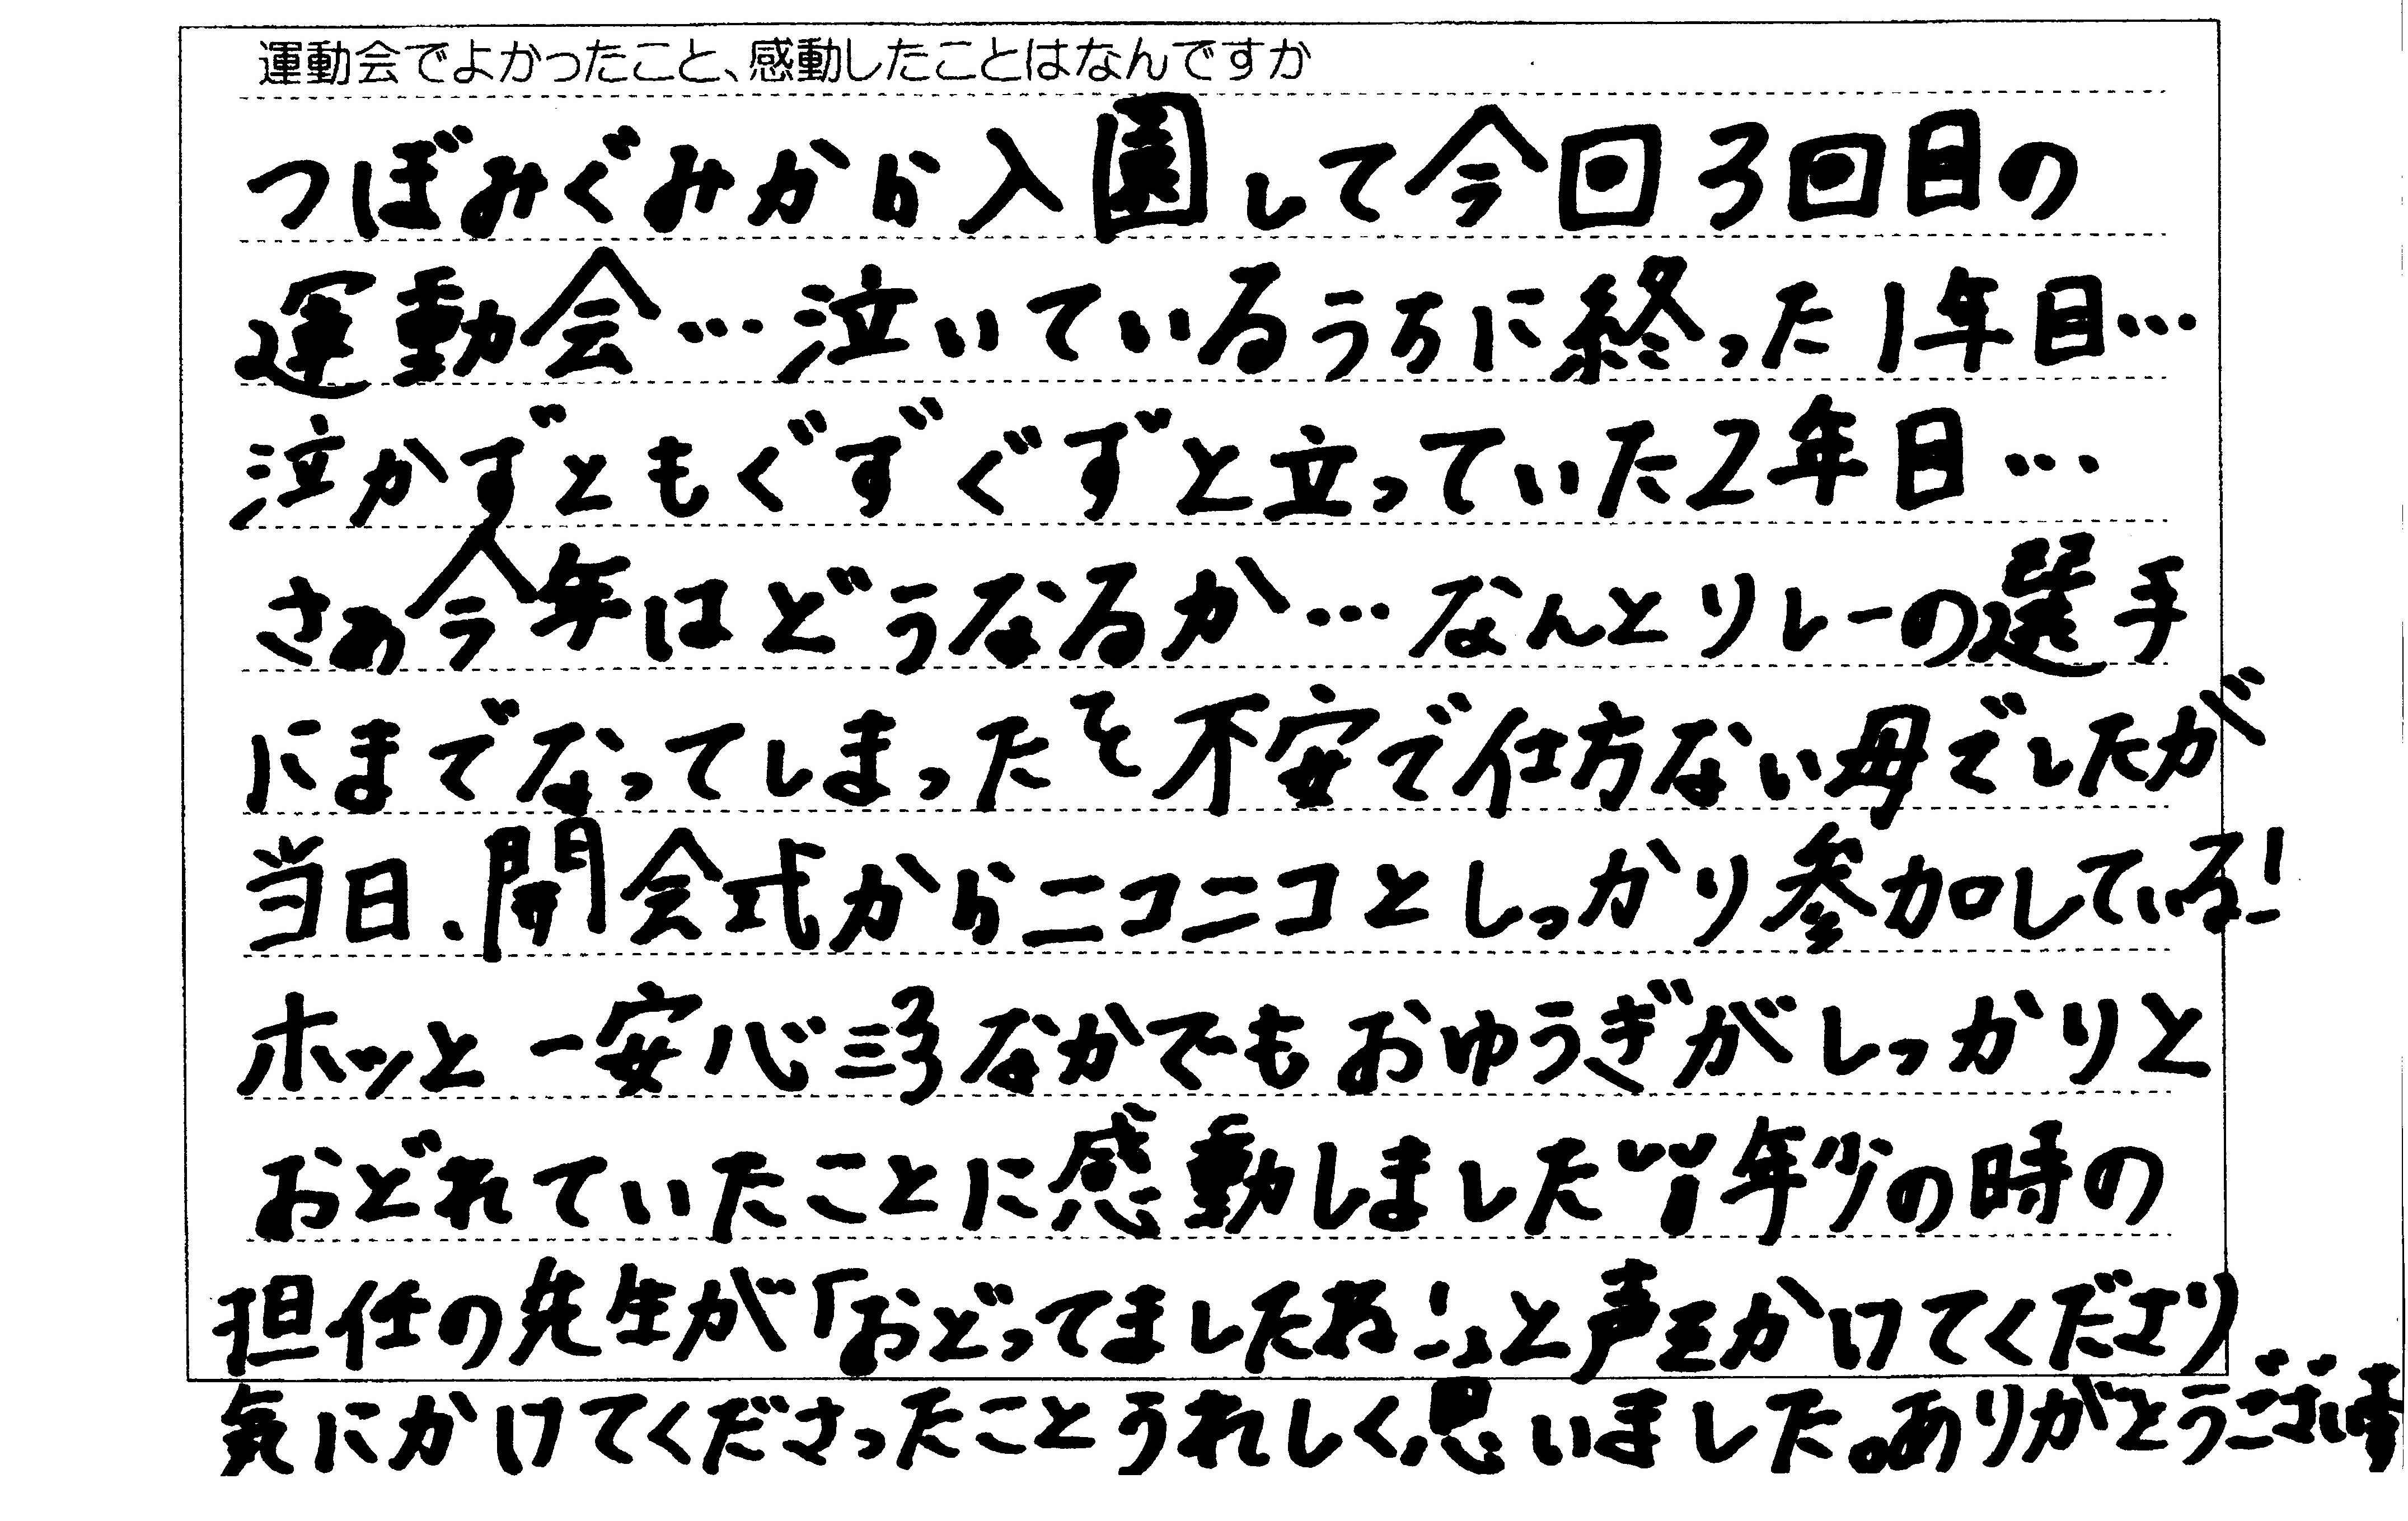 運動会でよかったこと、感動したことはなんですか
つぼみぐみから入園して今回3回目の
運動会…泣いているうちに終った1年目…
泣かずともぐずぐずと立っていた2年目…
さぁ今年はどうなるか…なんとリレーの選手
にまでなってしまった子を不安で仕方ない母でしたが
当日、開会式からニコニコとしっかり参加している!
ホッと一安心 なかでもおゆうぎがしっかりと
おどれていたことに感動しました!! 年少の時の
担任の先生が「おどってましたね!」と声をかけてくださり
気にかけてくださったことうれしく思いました。ありがとうございます